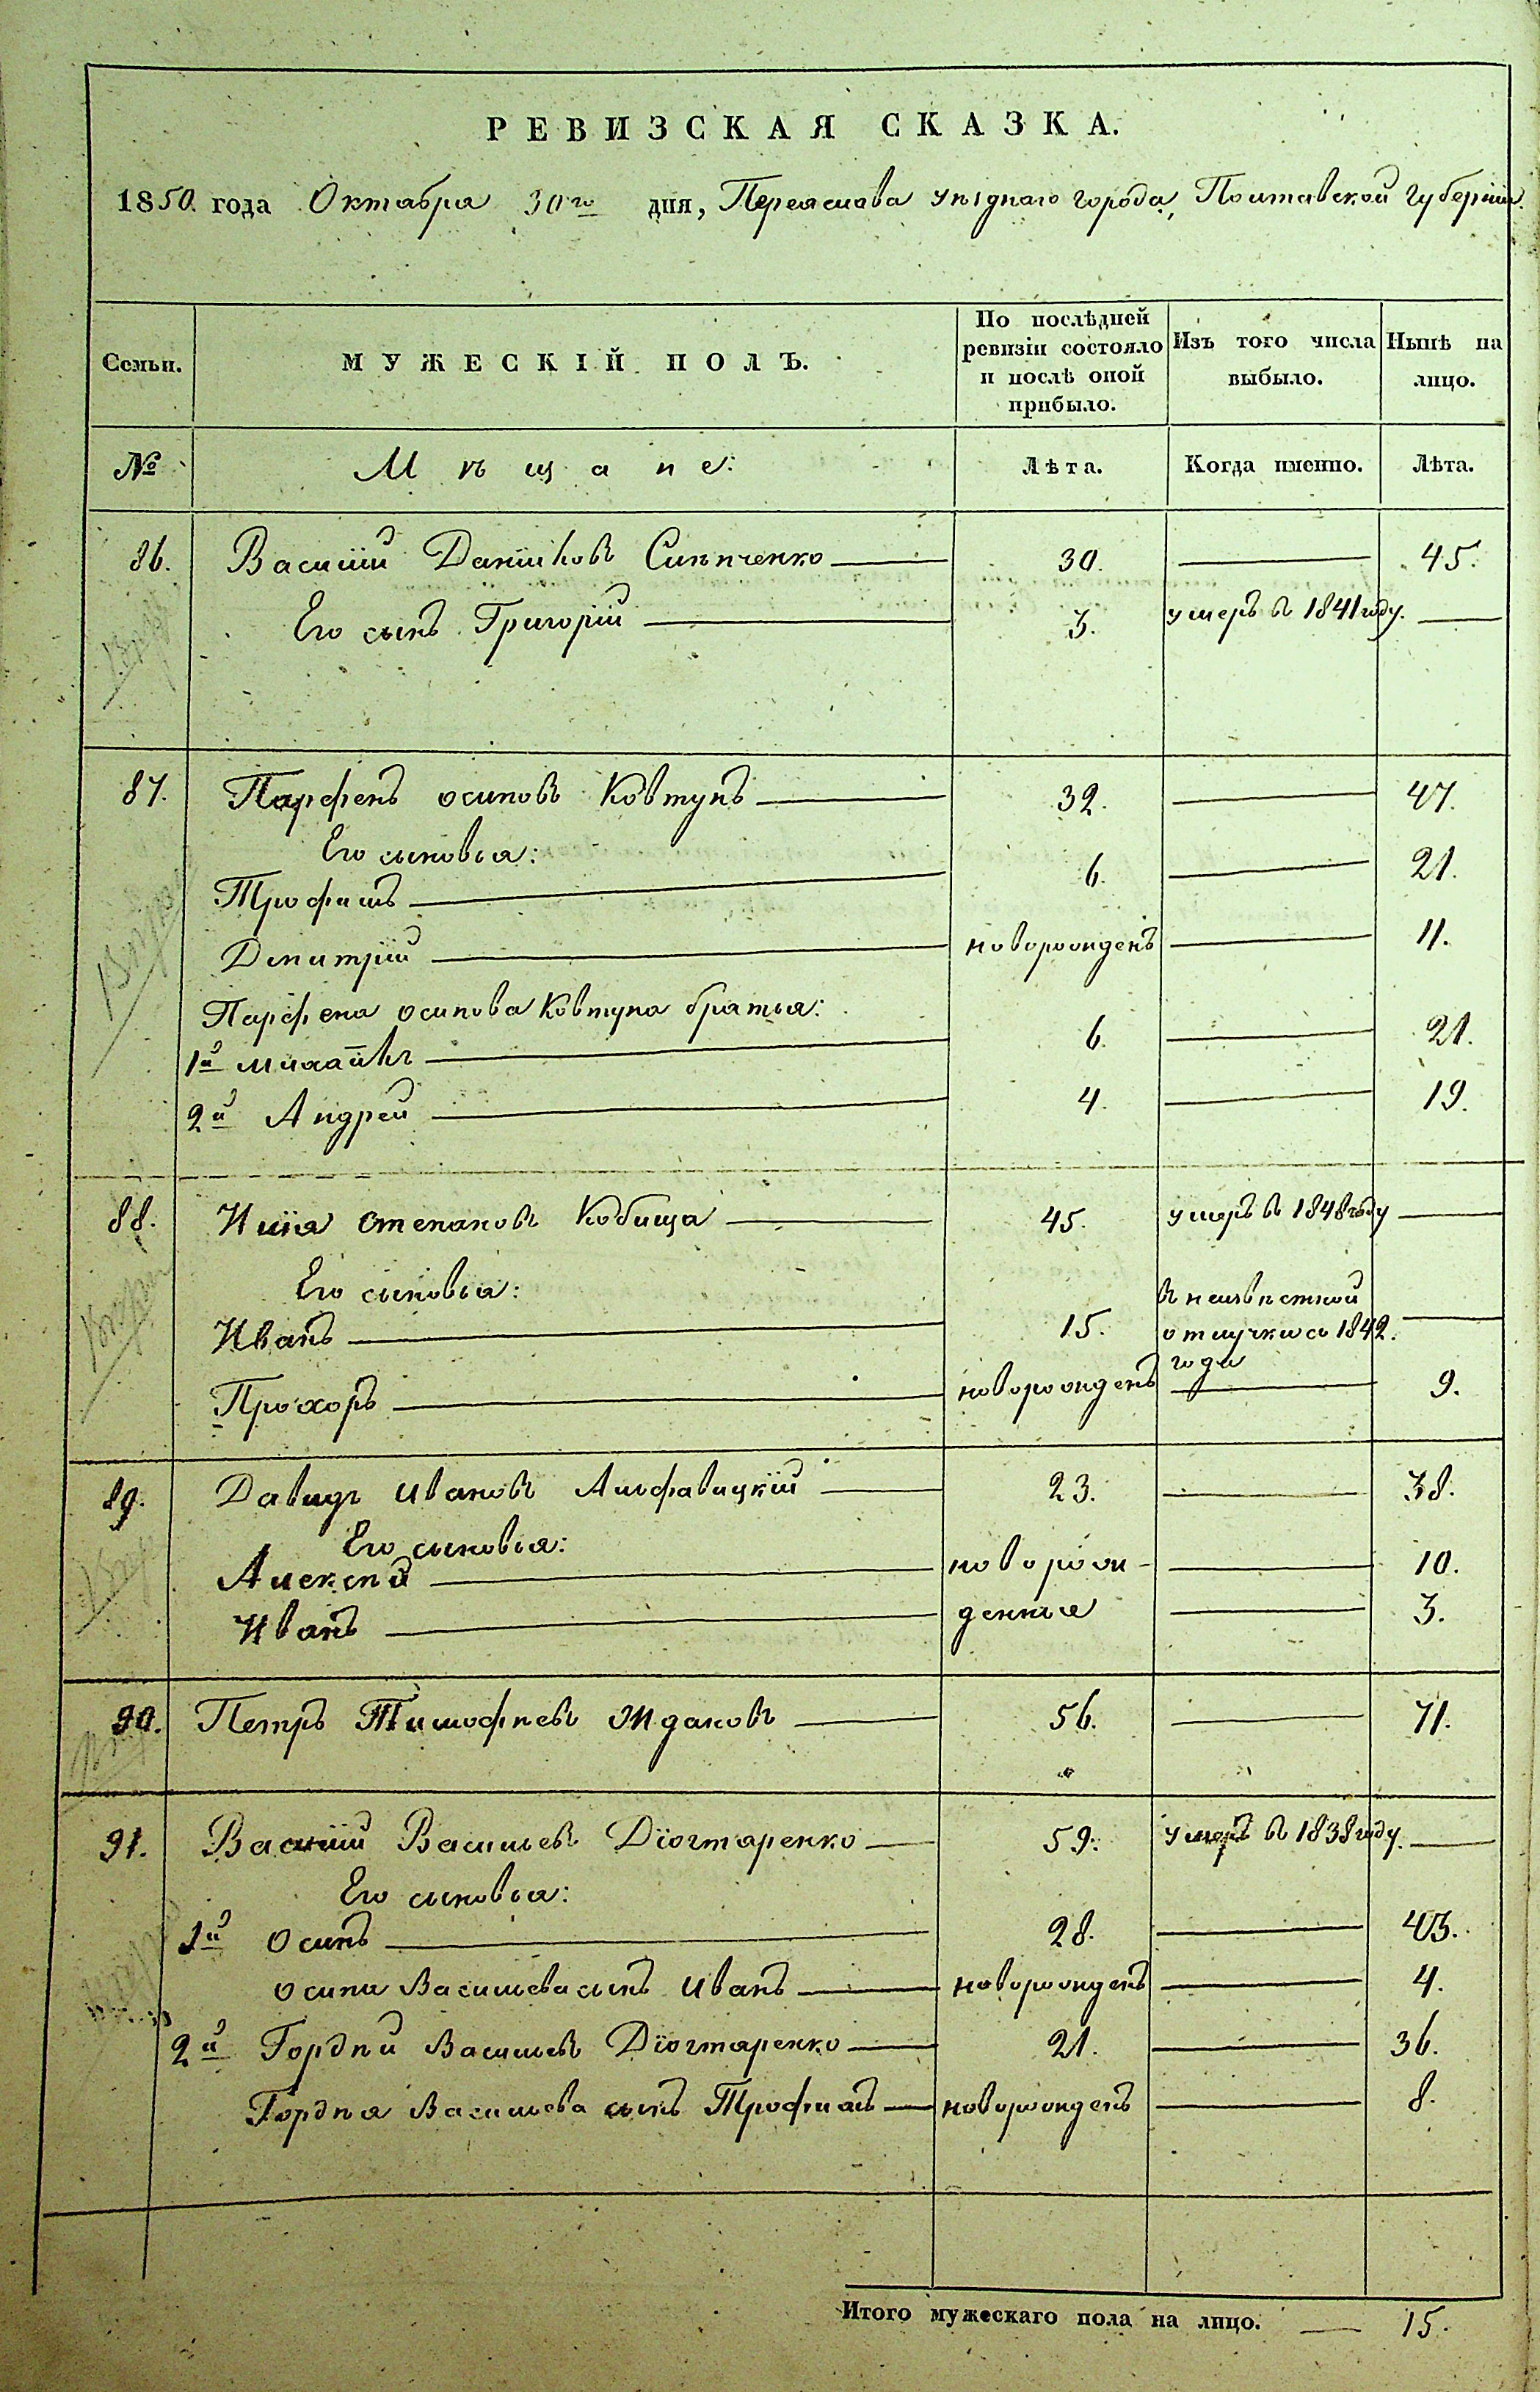 РЕВИЗСКАЯ СКАЗКА.
1850 года Октября 30го дня, Переяслава уѣзднаго города, Полтавской губерніи.
Семьи. МУЖЕСКІЙ ПОЛЪ. По послѣдней ревизіи состояло и послѣ оной прибыло. Изъ того числа выбыло. Нынѣ на лицо.
№ Мѣщане: Лѣта. Когда именно. Лѣта.
86. Василій Даниловъ 30. 45.
Его сынъ Григорій 3. умеръ въ 1841 году.
87. Парфенъ осиповъ Ковтунъ 32. 47.
Его сыновья:
Трофимъ 6. 21.
Дмитрій новорожденъ 11.
Парфена осипова Ковтуна братья:
1й михаилъ 6. 21.
2й Андрей 4. 19.
88. Илія степановъ Кобища 45. умеръ въ 1848 году
Его сыновья:
Иванъ 15. въ неизвѣстной отлучки съ 1842. года
Прохоръ новорожденъ 9.
89. Давидъ ивановъ Альфавицкій 23. 38.
Его сыновья:
Алексѣй новорож- 10.
Иванъ денные 3.
90. Петръ Тимофѣевъ Ждановъ 56. 71.
91. Василій Васильевъ Діогтаренко 59. умеръ въ 1838 году.
Его сыновья:
1й осипъ 28. 43.
осипа Васильева сынъ иванъ новорожденъ 4.
2й Гордѣй Васильевъ Діогтаренко 21. 36.
Гордѣя Васильева сынъ Трофимъ новорожденъ 8.
Итого мужескаго пола на лицо. 15.